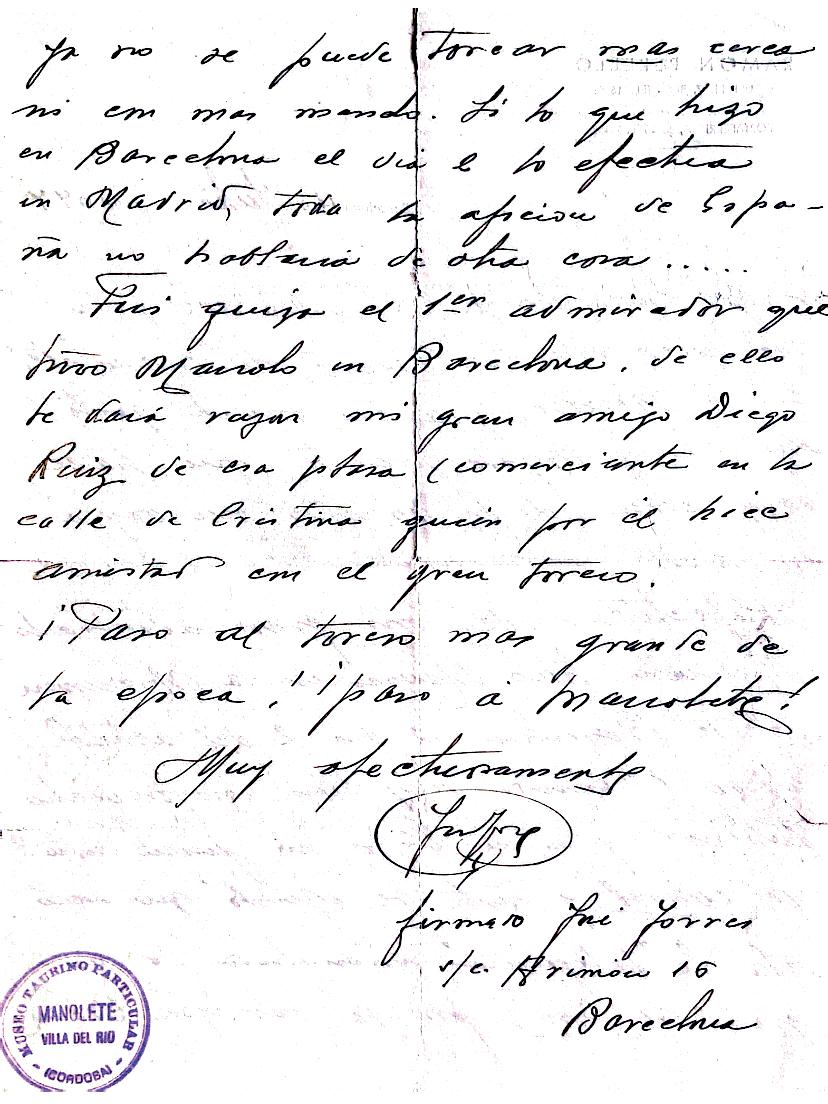 Ya no se puede torear mas cerca
ni con mas mando. Si lo que hizo
en Barcelona el dia 6 lo efectua
en Madrid, toda la aficion de Espa-
ña no hablaria de otra cosa .....
Fui quiza el 1er admirador que
tuvo Manolo en Barcelona, de ello
te dará razon mi gran amigo Diego
Ruiz de esa plaza (comerciante en la
calle de Cristina quien por él hice
amistad con el gran torero.
¡Paso al torero mas grande de
la epoca! ¡¡paso á Manolete!
Muy afectuosamente
firmado José Torres
s/c. 16
Barcelona
MUSEO TAURINO PARTICULAR
MANOLETE
VILLA DEL RIO
(CORDOBA)